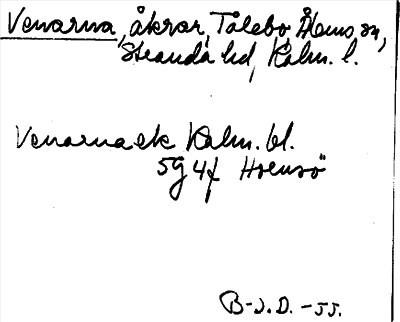 Venarna, åkrar, Tålebo, Ålems sn,
Stranda hd, Kalm. l.
Venarna ek Kalm. bl.
5g 4f Hornsö
B-J.D. -55.